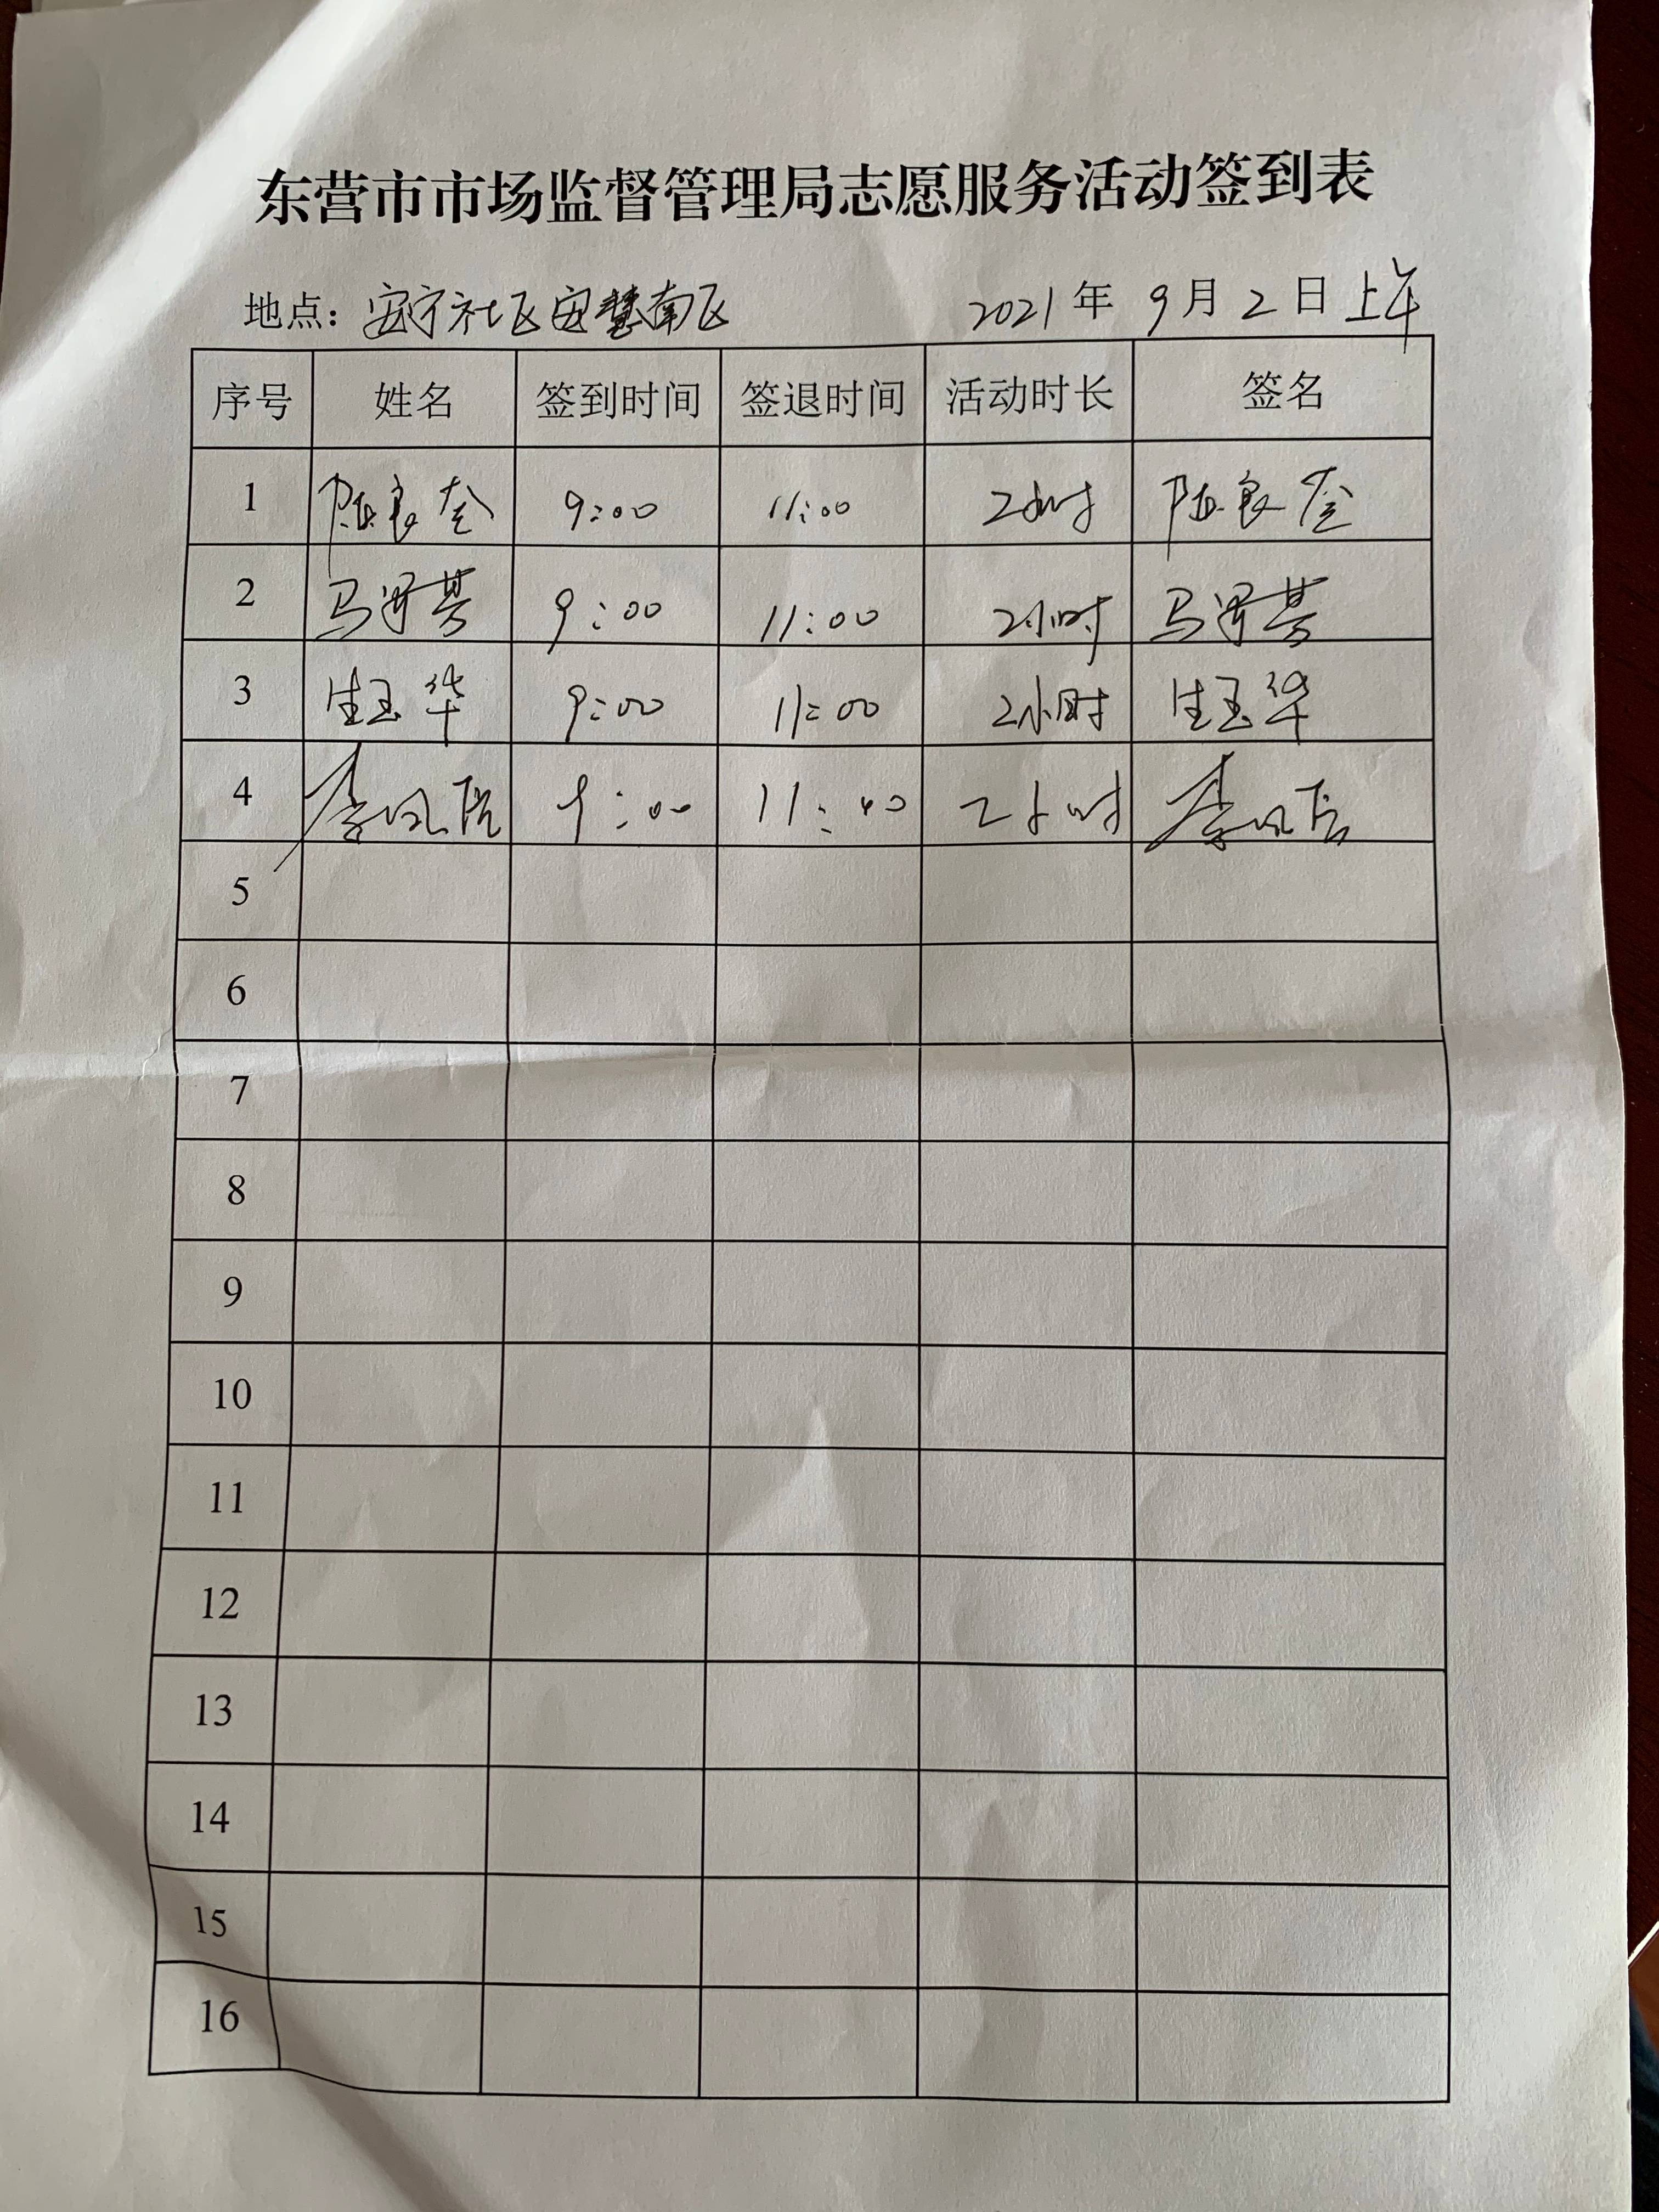 东营市市场监督管理局志愿服务活动签到表
地点：安宁社区安慧南区 2021年 9月 2日 上午
序号 姓名 签到时间 签退时间 活动时长 签名
1 陈良奎 9:00 11:00 2小时 陈良奎
2 马 9:00 11:00 2小时 马
3 生玉华 9:00 11:00 2小时 生玉华
4 李凤 9:00 11:00 2小时 李凤
5
6
7
8
9
10
11
12
13
14
15
16